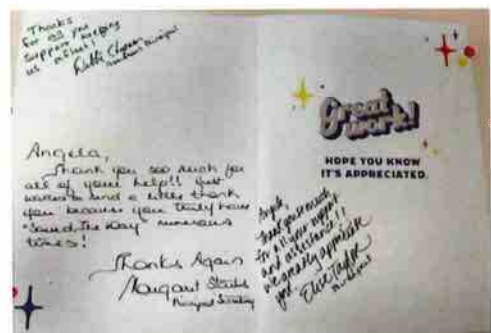 Thanks
for all you
support keeping
us afloat!
Angela,
Thank you soo much for
all of your help!! Just
wanted to send a little thank
you because you truly have
"Saved the day" numerous
times!
Thanks Again
Margaret
Principal Secretary
Great
work!
HOPE YOU KNOW
IT'S APPRECIATED.
Angela,
Thank you so much
for all your support
and assistance!!
We greatly appreciate
you!
Elise Taylor